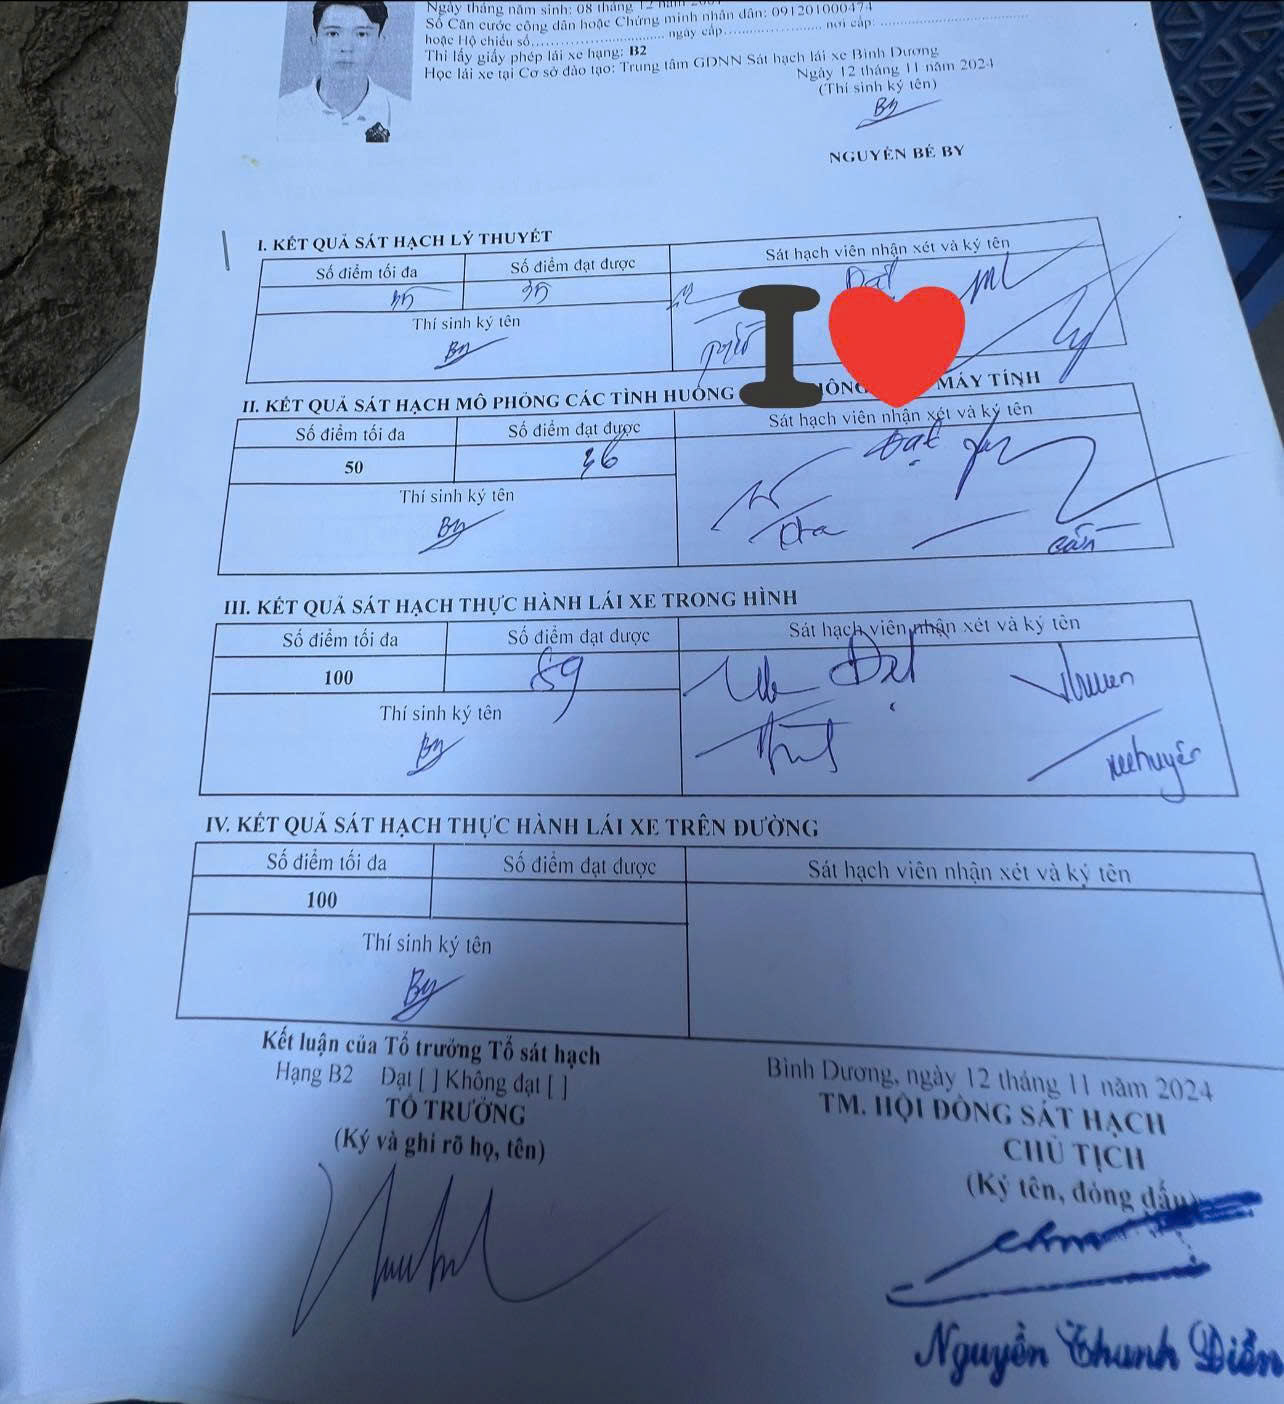 Ngày tháng năm sinh: 08 tháng 12 năm
Số Căn cước công dân hoặc Chứng minh nhân dân: 091201000474
hoặc Hộ chiếu số........................ ngày cấp.................. nơi cấp: ..............................
Thi lấy giấy phép lái xe hạng: B2
Học lái xe tại Cơ sở đào tạo: Trung tâm GDNN Sát hạch lái xe Bình Dương
Ngày 12 tháng 11 năm 2024
(Thí sinh ký tên)
By
NGUYỄN BÉ BY
I. KẾT QUẢ SÁT HẠCH LÝ THUYẾT
Số điểm tối đa Số điểm đạt được Sát hạch viên nhận xét và ký tên
35 35 Đạt
Thí sinh ký tên
By
I ❤
II. KẾT QUẢ SÁT HẠCH MÔ PHỎNG CÁC TÌNH HUỐNG MÁY TÍNH
Số điểm tối đa Số điểm đạt được Sát hạch viên nhận xét và ký tên
50 36 Đạt
Thí sinh ký tên
By
III. KẾT QUẢ SÁT HẠCH THỰC HÀNH LÁI XE TRONG HÌNH
Số điểm tối đa Số điểm đạt được Sát hạch viên nhận xét và ký tên
100 89 Đạt
Thí sinh ký tên
By
IV. KẾT QUẢ SÁT HẠCH THỰC HÀNH LÁI XE TRÊN ĐƯỜNG
Số điểm tối đa Số điểm đạt được Sát hạch viên nhận xét và ký tên
100
Thí sinh ký tên
By
Kết luận của Tổ trưởng Tổ sát hạch
Hạng B2 Đạt [ ] Không đạt [ ]
TỔ TRƯỞNG
(Ký và ghi rõ họ, tên)
Bình Dương, ngày 12 tháng 11 năm 2024
TM. HỘI ĐỒNG SÁT HẠCH
CHỦ TỊCH
(Ký tên, đóng dấu)
Nguyễn Thanh Diễn